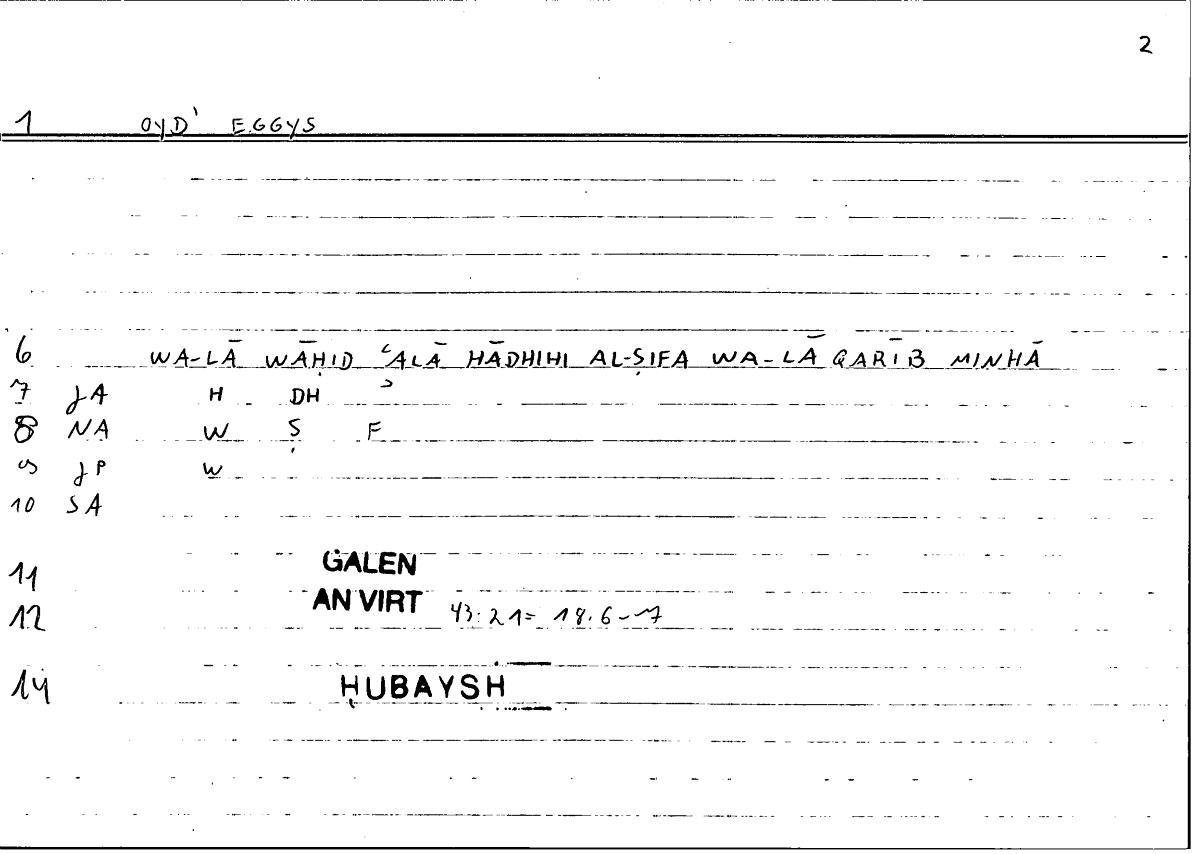 2
1 OYD' EGGYS
6 WA-LĀ WĀḤID ʿALĀ HĀDHIHI AL-ṢIFA WA-LĀ QARĪB MINHĀ
7 JA H DH ʾ
8 NA W Ṣ F
9 JP W
10 SA
11 GALEN
12 AN VIRT 43:21= 18.6-7
14 ḤUBAYSH